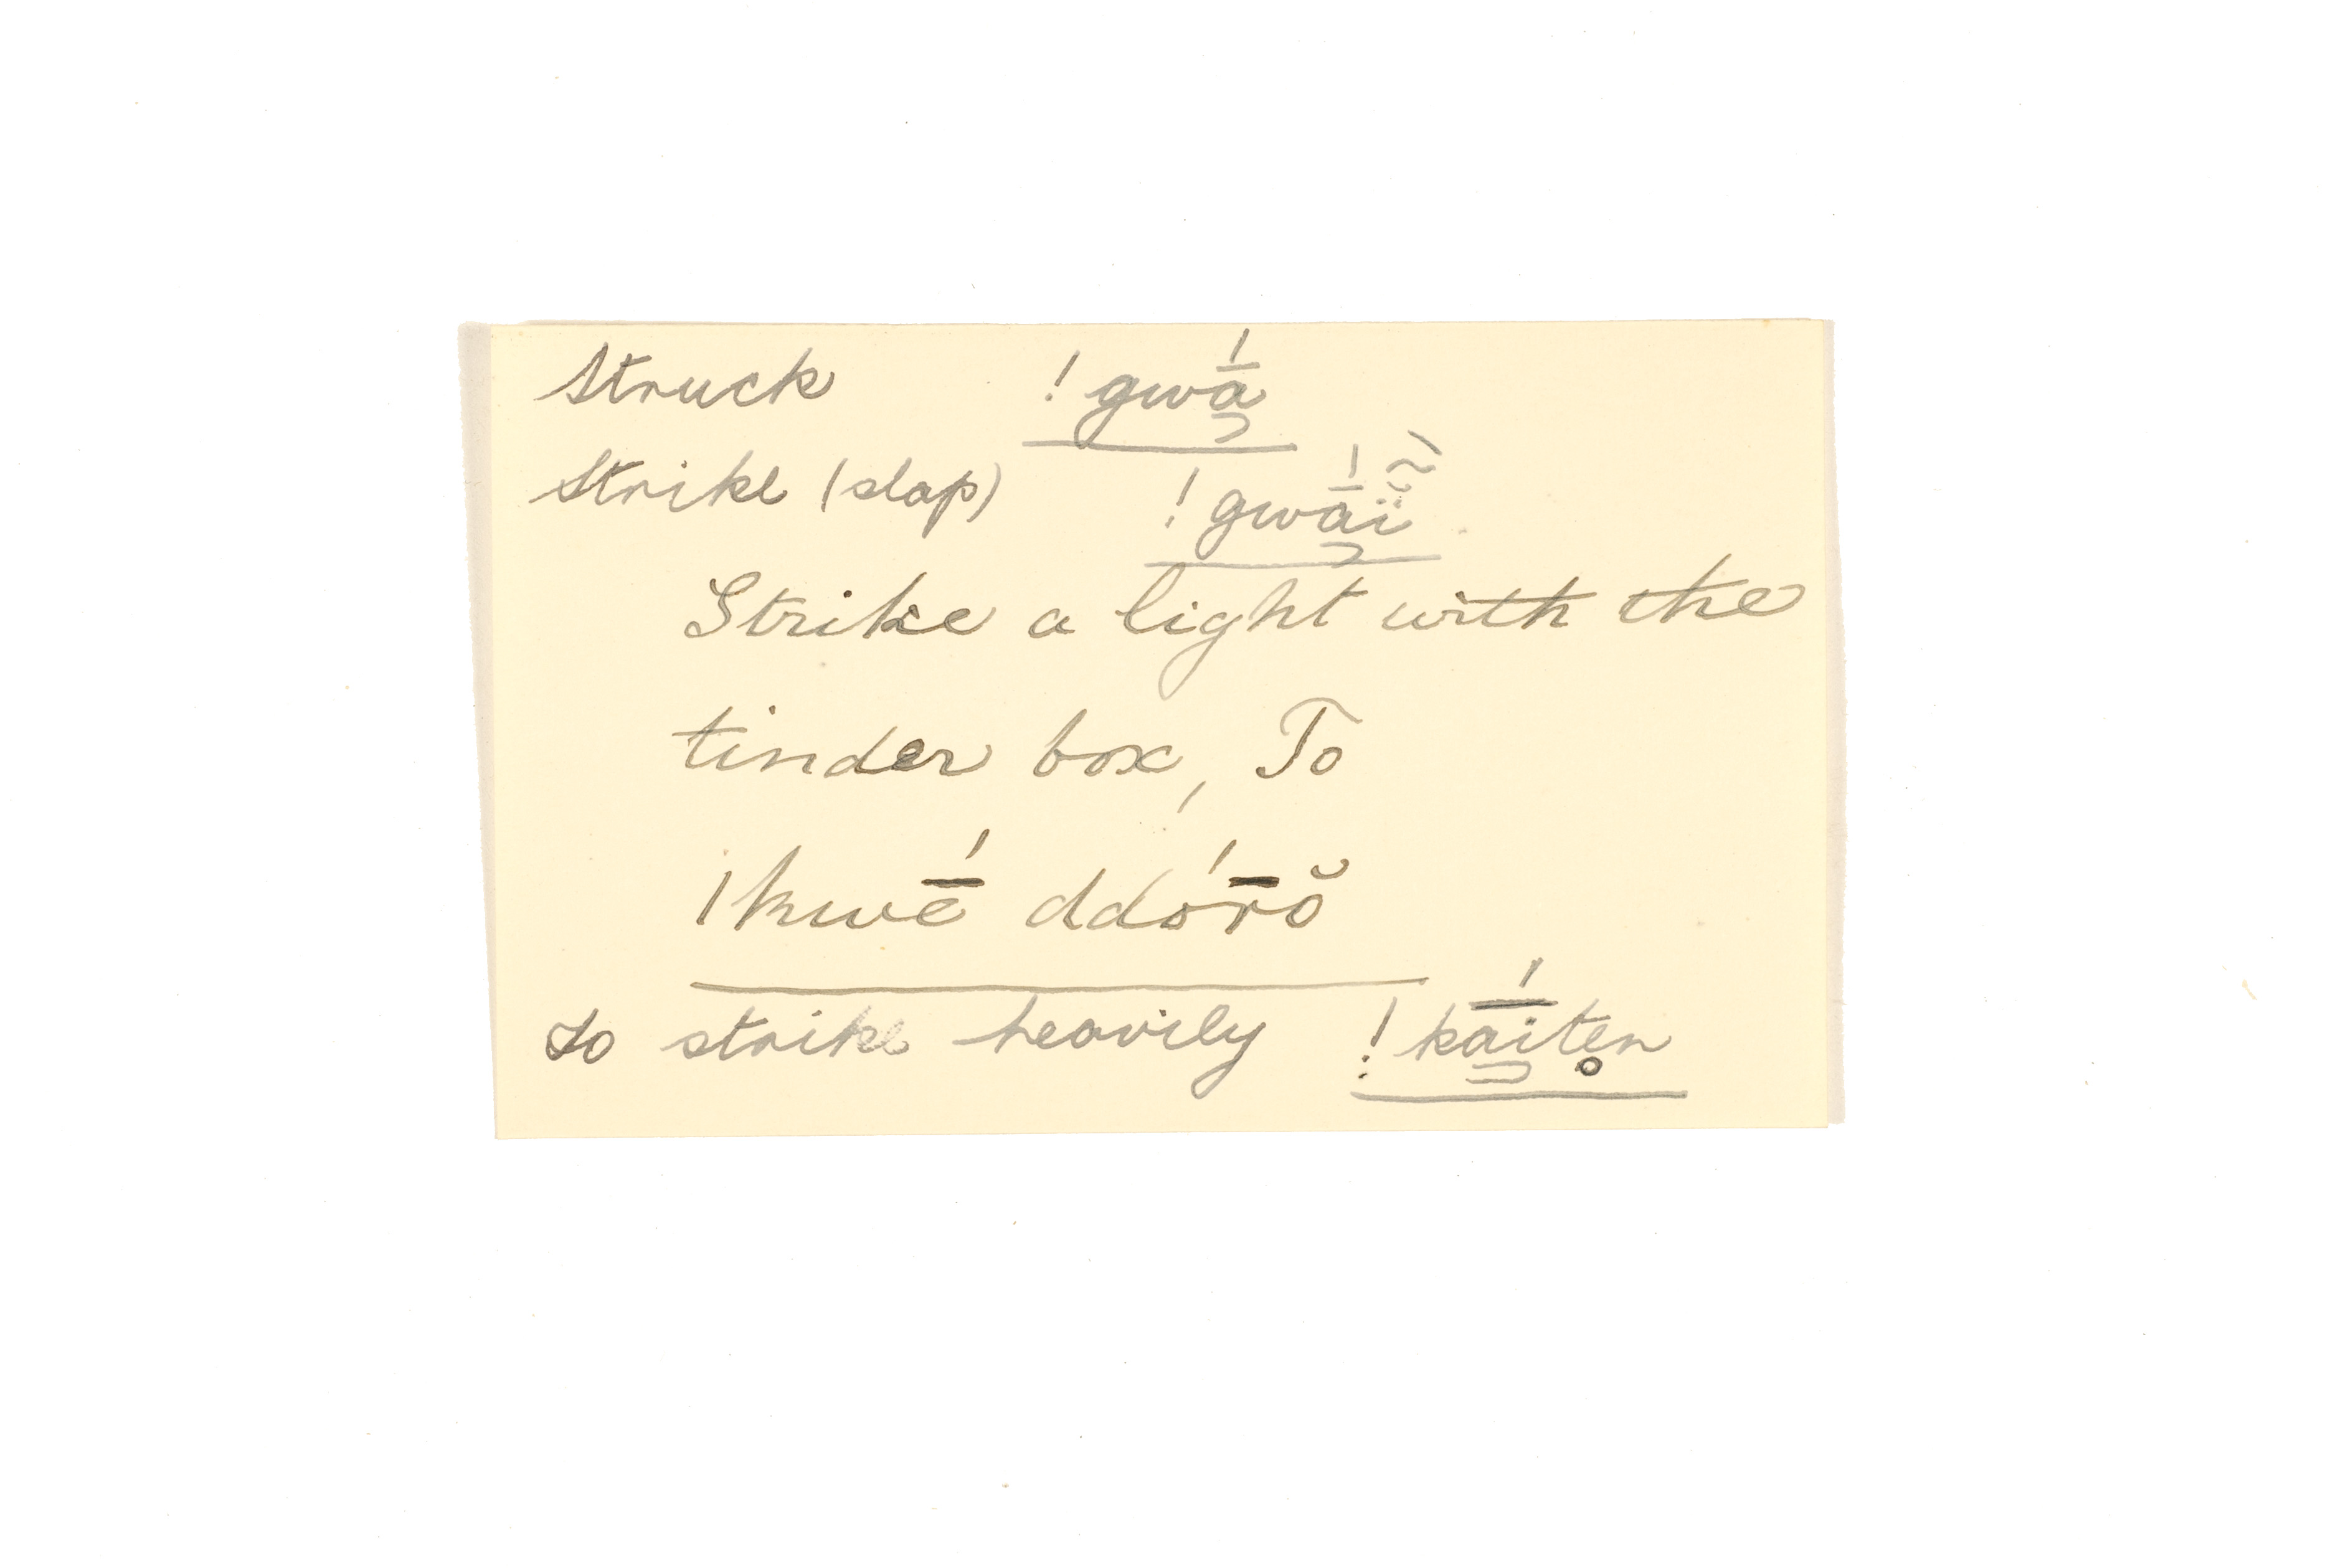 Struck !gwā́
Strike (slap) !gwā́ĭ̃
Strike a light with the
tinder box, To
|kwḗ ddór̄ŏ
to strike heavily !kā́iten̥